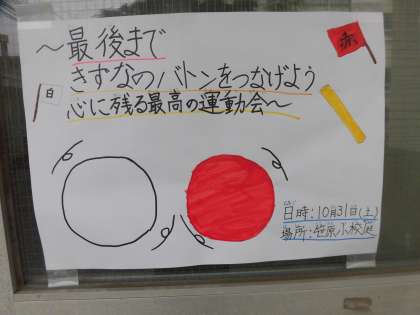 ～最後まで
きずなのバトンをつなげよう
心に残る最高の運動会～
白
赤
日時：10月31日(土)
場所：笹原小校庭